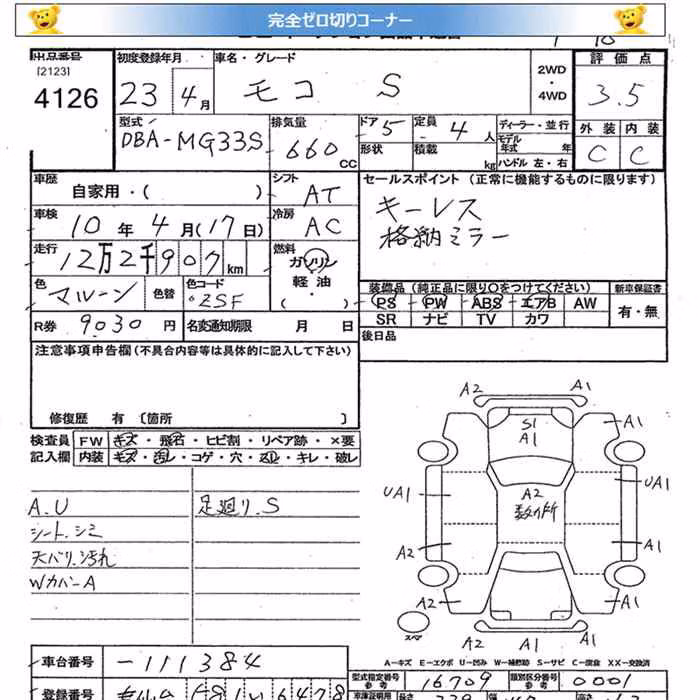 完全ゼロ切りコーナー
出品番号 初度登録年月 車名・グレード 2WD・4WD 評価点
[2123]
4126 23 4月 モコ S 3.5
型式 排気量 ドア 5 定員 4人 ディーラー・並行 外装 内装
DBA-MG33S 660 CC 形状 積載 kg モデル年式 年 ハンドル 左・右 C C
車歴 シフト セールスポイント (正常に機能するものに限ります)
自家用・( ) AT キーレス
車検 冷房 格納ミラー
10年 4月(17日) AC
走行 燃料
12万2千907km ガソリン
軽油
・( )
色 色替 色コード 装備品(純正品に限り○をつけてください) 新車保証書
マルーン ZSF PS PW ABS エアB AW 有・無
SR ナビ TV カワ
R券 9030円 名変通知期限 月 日 後日品
注意事項申告欄(不具合内容等は具体的に記入して下さい)
修復歴 有 〔箇所 〕
検査員 FW キズ・飛石・ヒビ割・リペア跡・×要
記入欄 内装 キズ・汚レ・コゲ・穴・スレ・キレ・破レ
A.U 足廻り.S
シート.シミ
天バリ.汚れ
Wカバ-A
A2 A1
S1
A1
A1
UA1 A2 UA1
数カ所
A2 A1
A2 A1
スペア A1 A1
A-キズ E-エクボ U-凹み W-補修跡 S-サビ C-腐食 XX-交換済
車台番号 -111384 型式指定番号 16709 類別区分番号 0001
参考 参考
登録番号 長さ 幅 高さ